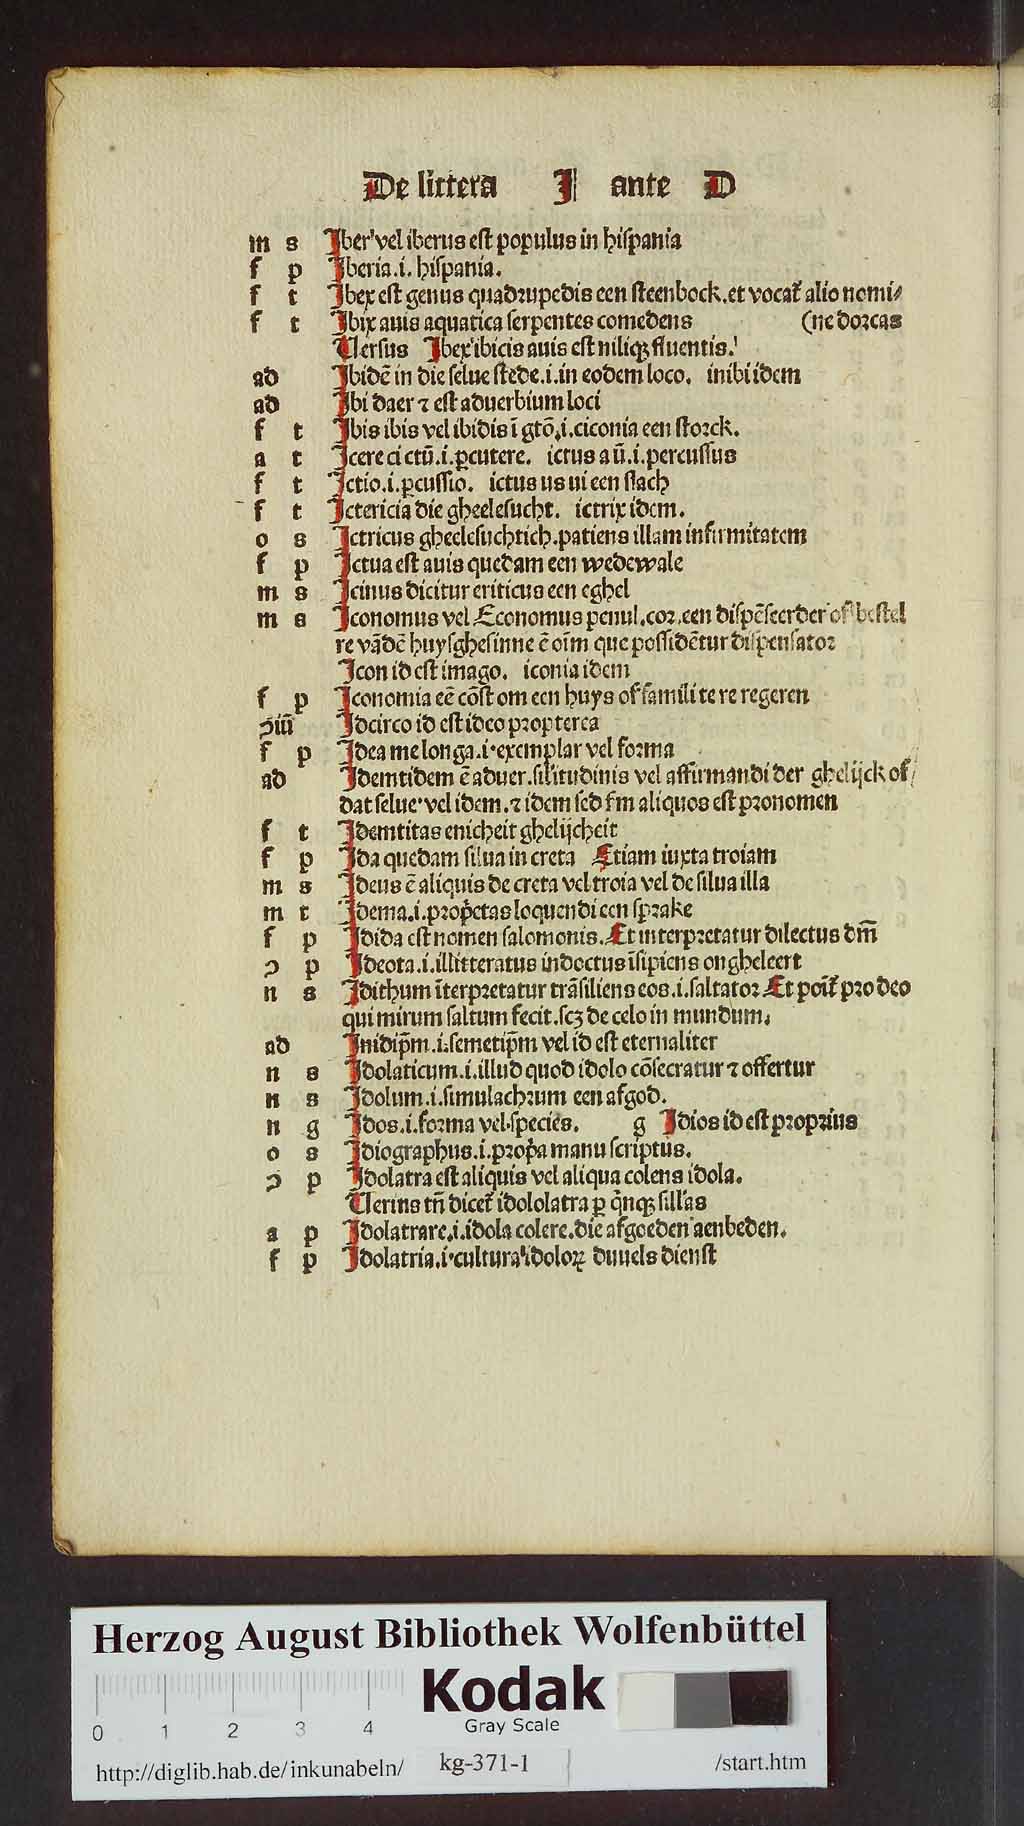 De littera I ante D
m s Iber' vel iberus est populus in hispania
f p Iberia .i. hispania.
f t Ibex est genus quadrupedis een steenbock. et vocat̉ alio nomi⸗
f t Ibix auis aquatica serpentes comedens (ne dorcas
Versus Ibex' ibicis auis est niliqꝫ fluentis.'
ad Ibidē in die selue stede .i. in eodem loco. inibi idem
ad Ibi daer ⁊ est aduerbium loci
f t Ibis ibis vel ibidis ī gtō .i. ciconia een storck.
a t Icere ci ctū .i. ꝑcutere. ictus a ū .i. percussus
f t Ictio .i. ꝑcussio. ictus us ui een slach
f t Ictericia die gheelesucht. ictrix idem.
o s Ictricus gheelesuchtich. patiens illam infirmitatem
f p Ictua est auis quedam een wedewale
m s Icinus dicitur eriticus een eghel
m s Iconomus vel Economus penul. cor. een dispēseerder of bestel
re vādē huysghesinne ē oīm que possidētur dispensator
Icon id est imago. iconia idem
f p Iconomia eē cōst om een huys of familite re regeren
ↄiū Idcirco id est ideo propterea
f p Idea me longa .i. exemplar vel forma
ad Idemtidem ē aduer. silitudinis vel affirmandi der ghelijck of
dat selue' vel idem. ⁊ idem sed sm aliquos est pronomen
f t Idemtitas enicheit ghelijcheit
f p Ida quedam silua in creta Etiam iuxta troiam
m s Ideus ē aliquis de creta vel troia vel de silua illa
m t Idema .i. prop̉etas loquendi een sprake
f p Idida est nomen salomonis. Et interpretatur dilectus dm̄
ↄ p Ideota .i. illitteratus indoctus īsipiens ongheleert
n s Idithum īterpretatur trāsiliens eos .i. saltator Et poīt̉ pro deo
qui mirum saltum fecit. scꝫ de celo in mundum.
ad Inidip̄m .i. semetip̄m vel id est eternaliter
n s Idolaticum .i. illud quod idolo cōsecratur ⁊ offertur
n s Idolum .i. simulachrum een afgod.
n g Idos .i. forma vel species. g Idios id est proprius
o s Idiographus .i. prop̉a manu scriptus.
ↄ p Idolatra est aliquis vel aliqua colens idola.
Verius tn̄ dicet̉ idololatra ꝑ q̄nqꝫ sillas
a p Idolatrare .i. idola colere. die afgoeden aenbeden.
f p Idolatria .i. cultura idoloꝝ duuels dienst
Herzog August Bibliothek Wolfenbüttel
Kodak
Gray Scale
0 1 2 3 4
http://diglib.hab.de/inkunabeln/ kg-371-1 /start.htm